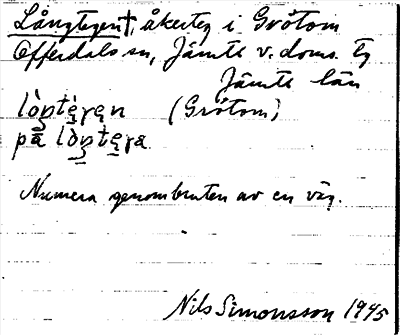 Långtegen†, åkerteg i Grötom
Offerdals sn, Jämtl. v. doms. tg
Jämtl. län
(Grötom)
på
Numera genombruten av en väg.
Nils Simonsson 1945